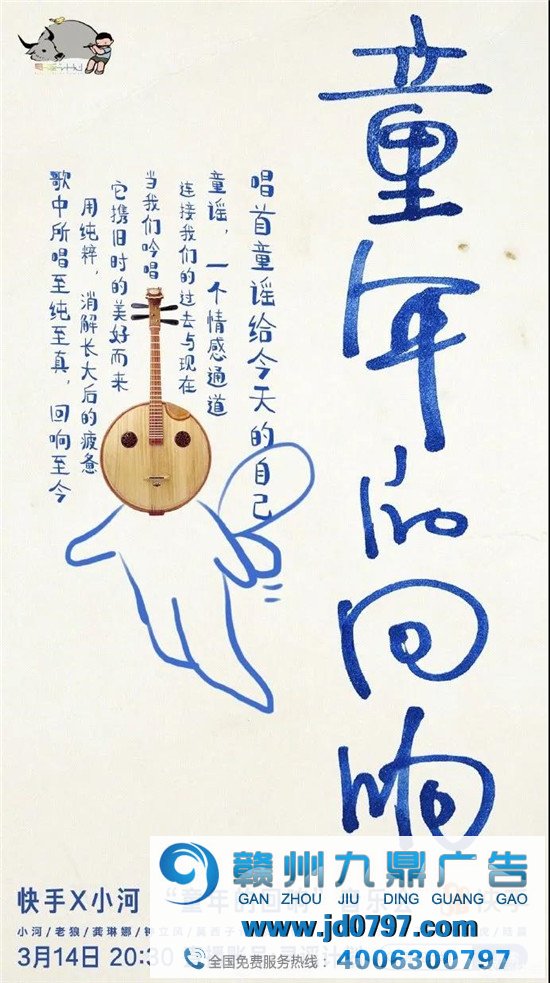 童年的回响
唱首童谣给今天的自己
童谣，一个情感通道
连接我们的过去与现在
当我们吟唱
它携旧时的美好而来
用纯粹，消解长大后的疲惫
歌中所唱至纯至真，回响至今
快手X小河
小河/老狼/龚琳娜/钟立风
3月14日 20:30
赣州九鼎广告
GAN ZHOU JIU DING GUANG GAO
www.jd0797.com
全国免费服务热线：4006300797